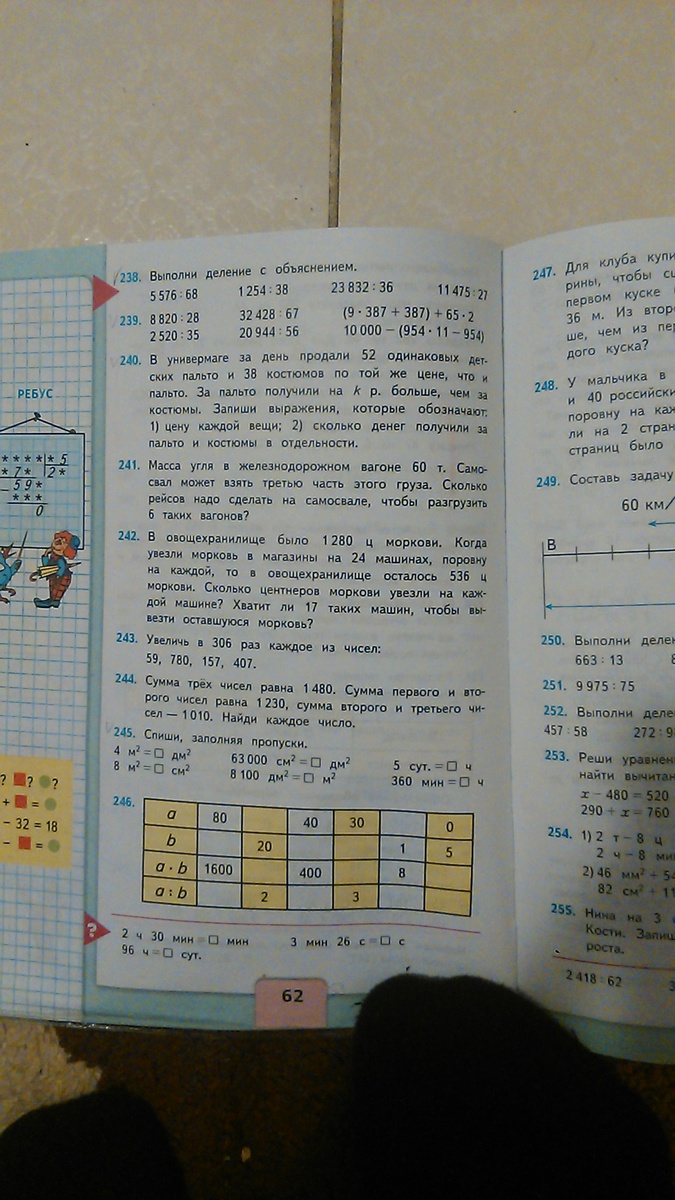 РЕБУС
* * * * * | * 5
* 7 * | 2 *
− 5 9 *
* * *
0
? ■ ? ● ?
+ ■ = ●
− 32 = 18
− ■ = ●
?
238. Выполни деление с объяснением.
5 576 : 68 1 254 : 38 23 832 : 36 11 475 : 27
239. 8 820 : 28 32 428 : 67 (9 · 387 + 387) + 65 · 2
2 520 : 35 20 944 : 56 10 000 − (954 · 11 − 954)
240. В универмаге за день продали 52 одинаковых дет-
ских пальто и 38 костюмов по той же цене, что и
пальто. За пальто получили на k р. больше, чем за
костюмы. Запиши выражения, которые обозначают:
1) цену каждой вещи; 2) сколько денег получили за
пальто и костюмы в отдельности.
241. Масса угля в железнодорожном вагоне 60 т. Само-
свал может взять третью часть этого груза. Сколько
рейсов надо сделать на самосвале, чтобы разгрузить
6 таких вагонов?
242. В овощехранилище было 1 280 ц моркови. Когда
увезли морковь в магазины на 24 машинах, поровну
на каждой, то в овощехранилище осталось 536 ц
моркови. Сколько центнеров моркови увезли на каж-
дой машине? Хватит ли 17 таких машин, чтобы вы-
везти оставшуюся морковь?
243. Увеличь в 306 раз каждое из чисел:
59, 780, 157, 407.
244. Сумма трёх чисел равна 1 480. Сумма первого и вто-
рого чисел равна 1 230, сумма второго и третьего чи-
сел — 1 010. Найди каждое число.
245. Спиши, заполняя пропуски.
4 м² = □ дм² 63 000 см² = □ дм² 5 сут. = □ ч
8 м² = □ см² 8 100 дм² = □ м² 360 мин = □ ч
246.
a 80 40 30 0
b 20 1 5
a · b 1600 400 8
a : b 2 3
2 ч 30 мин = □ мин 3 мин 26 с = □ с
96 ч = □ сут.
62
247. Для клуба купи
рины, чтобы сш
первом куске
36 м. Из второ
ше, чем из пер
дого куска?
248. У мальчика в
и 40 российски
поровну на каж
ли на 2 стран
страниц было
249. Составь задачу
60 км/
В
250. Выполни делен
663 : 13 8
251. 9 975 : 75
252. Выполни деле
457 : 58 272 : 9
253. Реши уравнени
найти вычитан
x − 480 = 520
290 + x = 760
254. 1) 2 т − 8 ц
2 ч − 8 мин
2) 46 мм² + 54
82 см² + 11
255. Нина на 3
Кости. Запиш
роста.
2 418 : 62 3